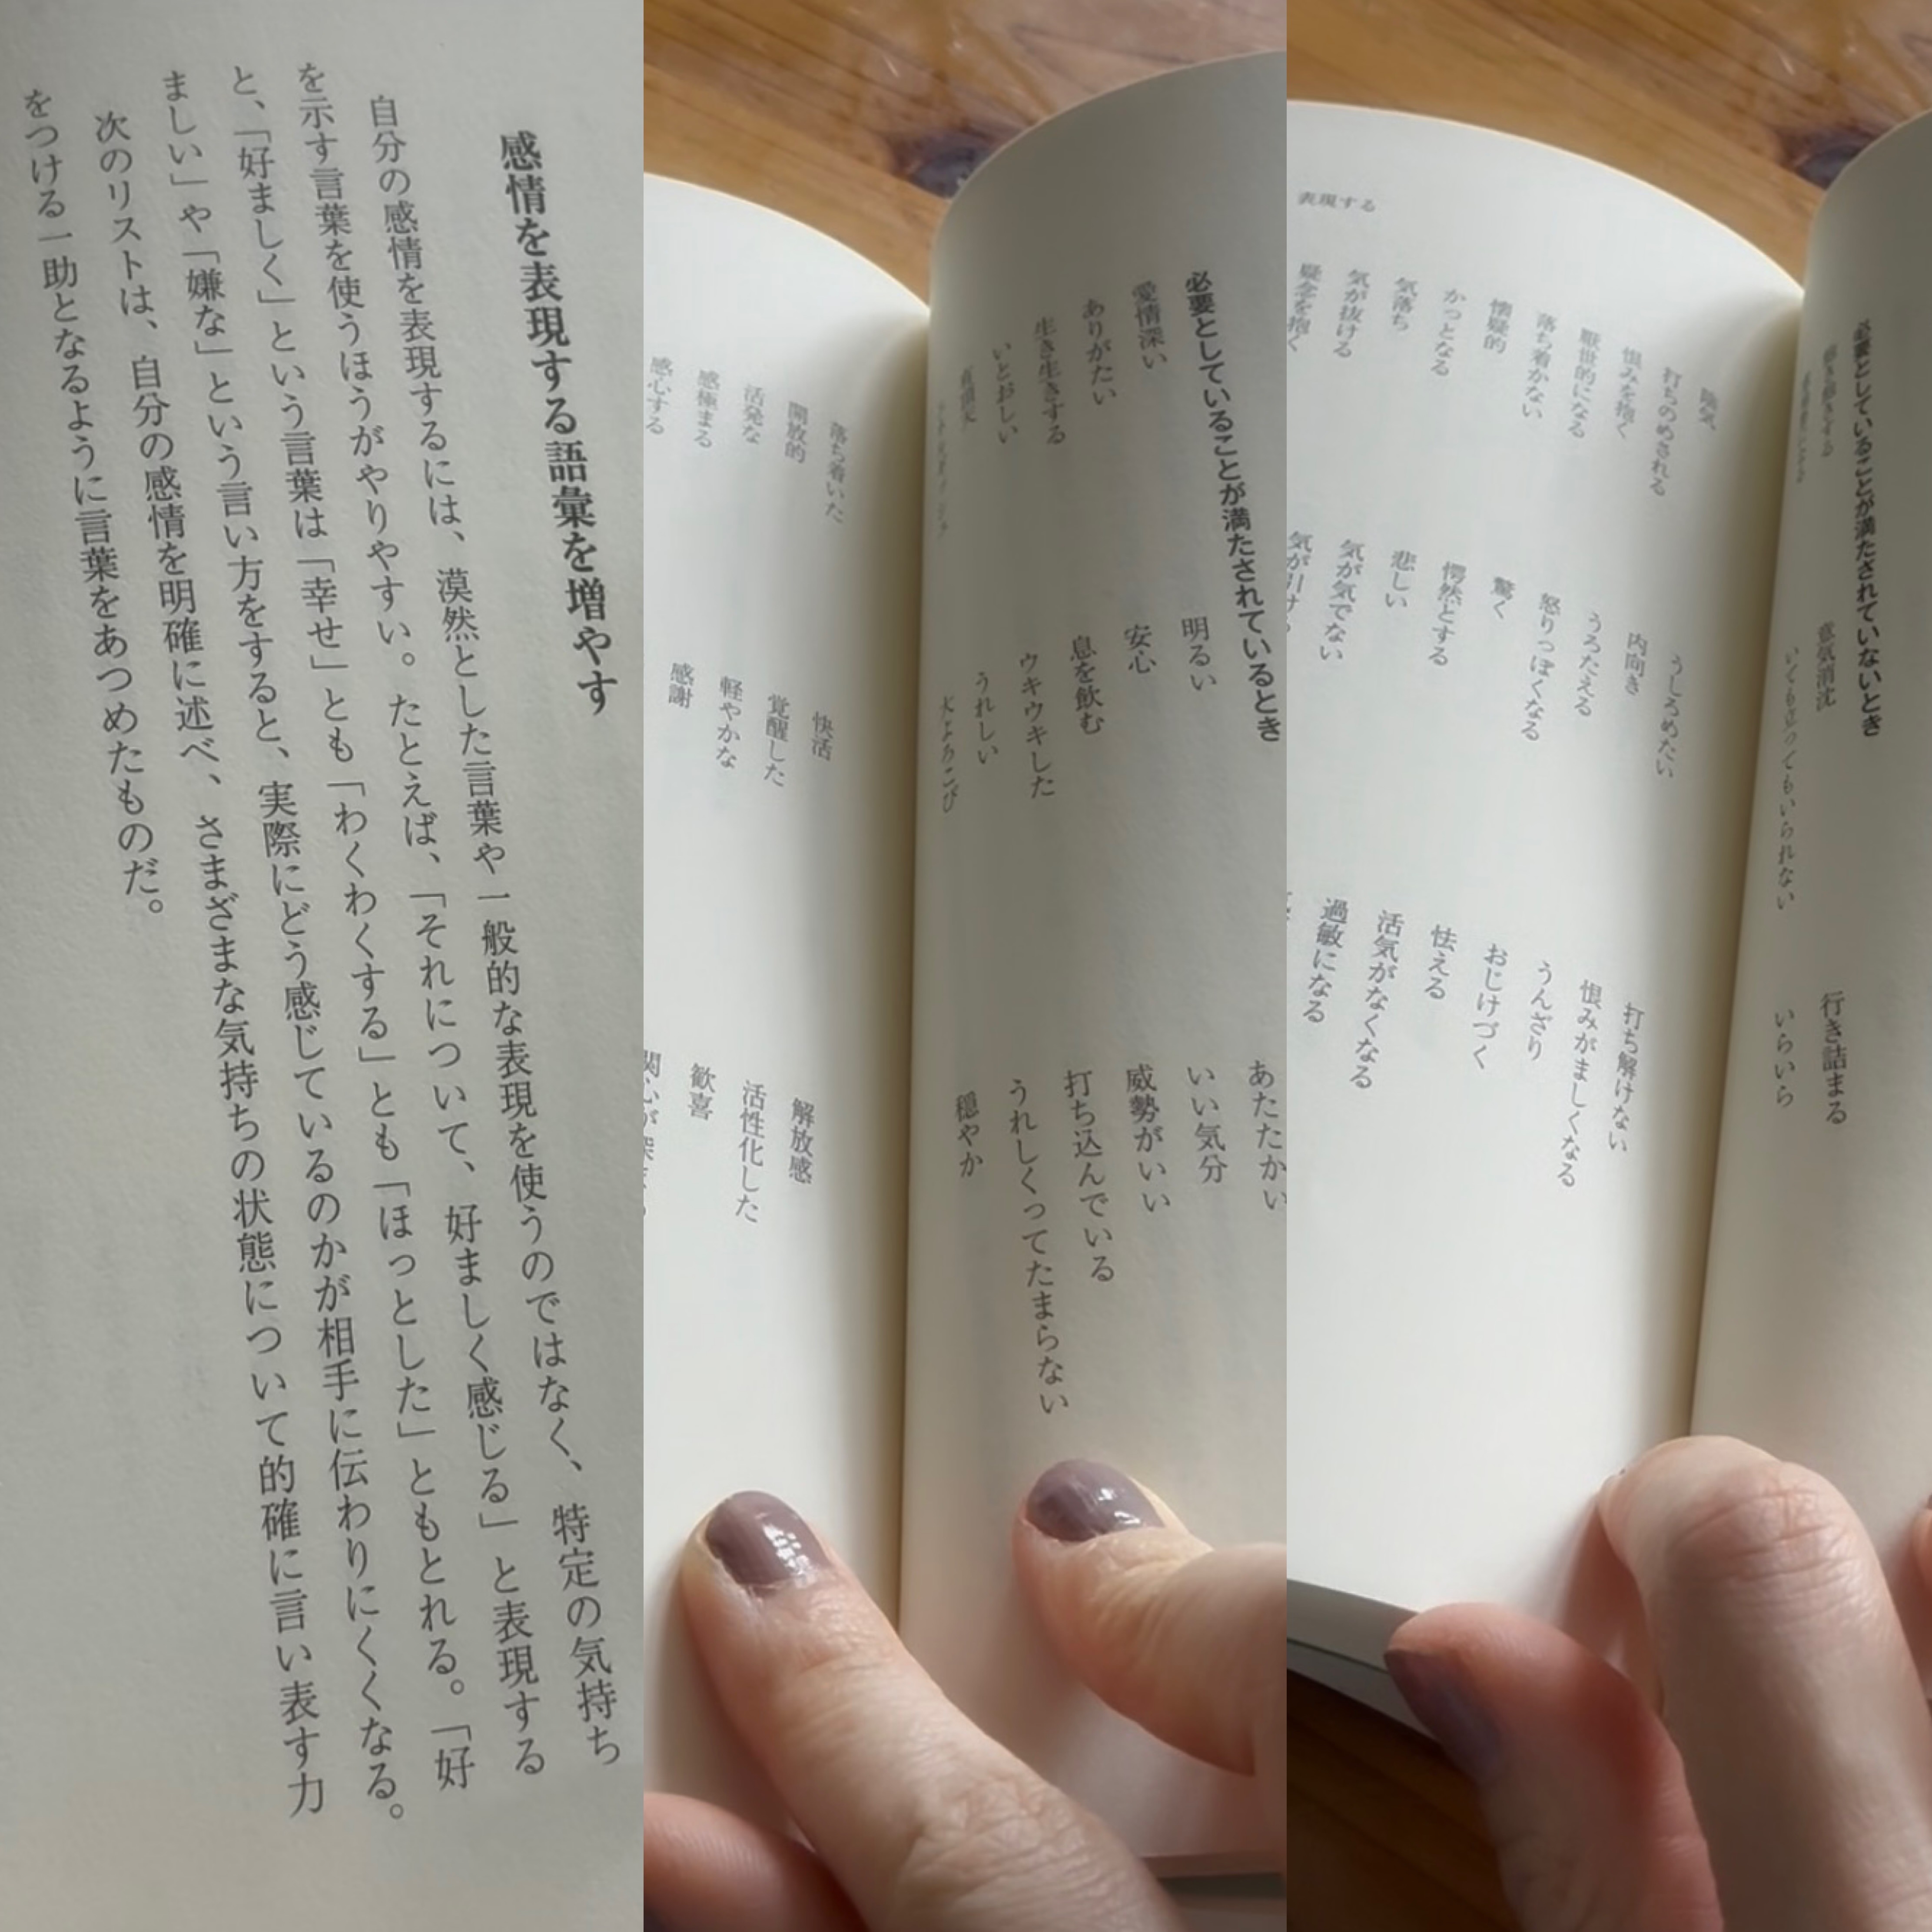 感情を表現する語彙を増やす
自分の感情を表現するには、漠然とした言葉や一般的な表現を使うのではなく、特定の気持ち
を示す言葉を使うほうがやりやすい。たとえば、「それについて、好ましく感じる」と表現する
と、「好ましく」という言葉は「幸せ」とも「わくわくする」とも「ほっとした」ともとれる。「好
ましい」や「嫌な」という言い方をすると、実際にどう感じているのかが相手に伝わりにくくなる。
次のリストは、自分の感情を明確に述べ、さまざまな気持ちの状態について的確に言い表す力
をつける一助となるように言葉をあつめたものだ。
必要としていることが満たされているとき
あたたかい
愛情深い 明るい いい気分
ありがたい 安心 威勢がいい
生き生きする 息を飲む 打ち込んでいる
いとおしい ウキウキした うれしくってたまらない
有頂天 うれしい 穏やか
大よろこび
落ち着いた 快活 解放感
開放的 覚醒した 活性化した
活発な 軽やかな 歓喜
感極まる 感謝
感心する
必要としていることが満たされていないとき
意気消沈 行き詰まる
いても立ってもいられない いらいら
表現する
陰気 うしろめたい 打ち解けない
打ちのめされる 内向き 恨みがましくなる
恨みを抱く うろたえる うんざり
厭世的になる 怒りっぽくなる おじけづく
落ち着かない 驚く 怯える
懐疑的 愕然とする 活気がなくなる
かっとなる 悲しい 過敏になる
気落ち 気が気でない
気が抜ける
疑念を抱く